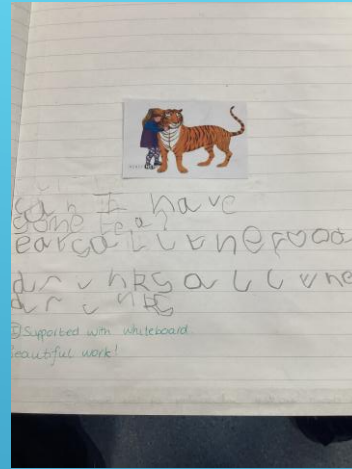 can I have
some tea?
eats all the food
drinks all the
drinks
Supported with whiteboard
eautiful work!